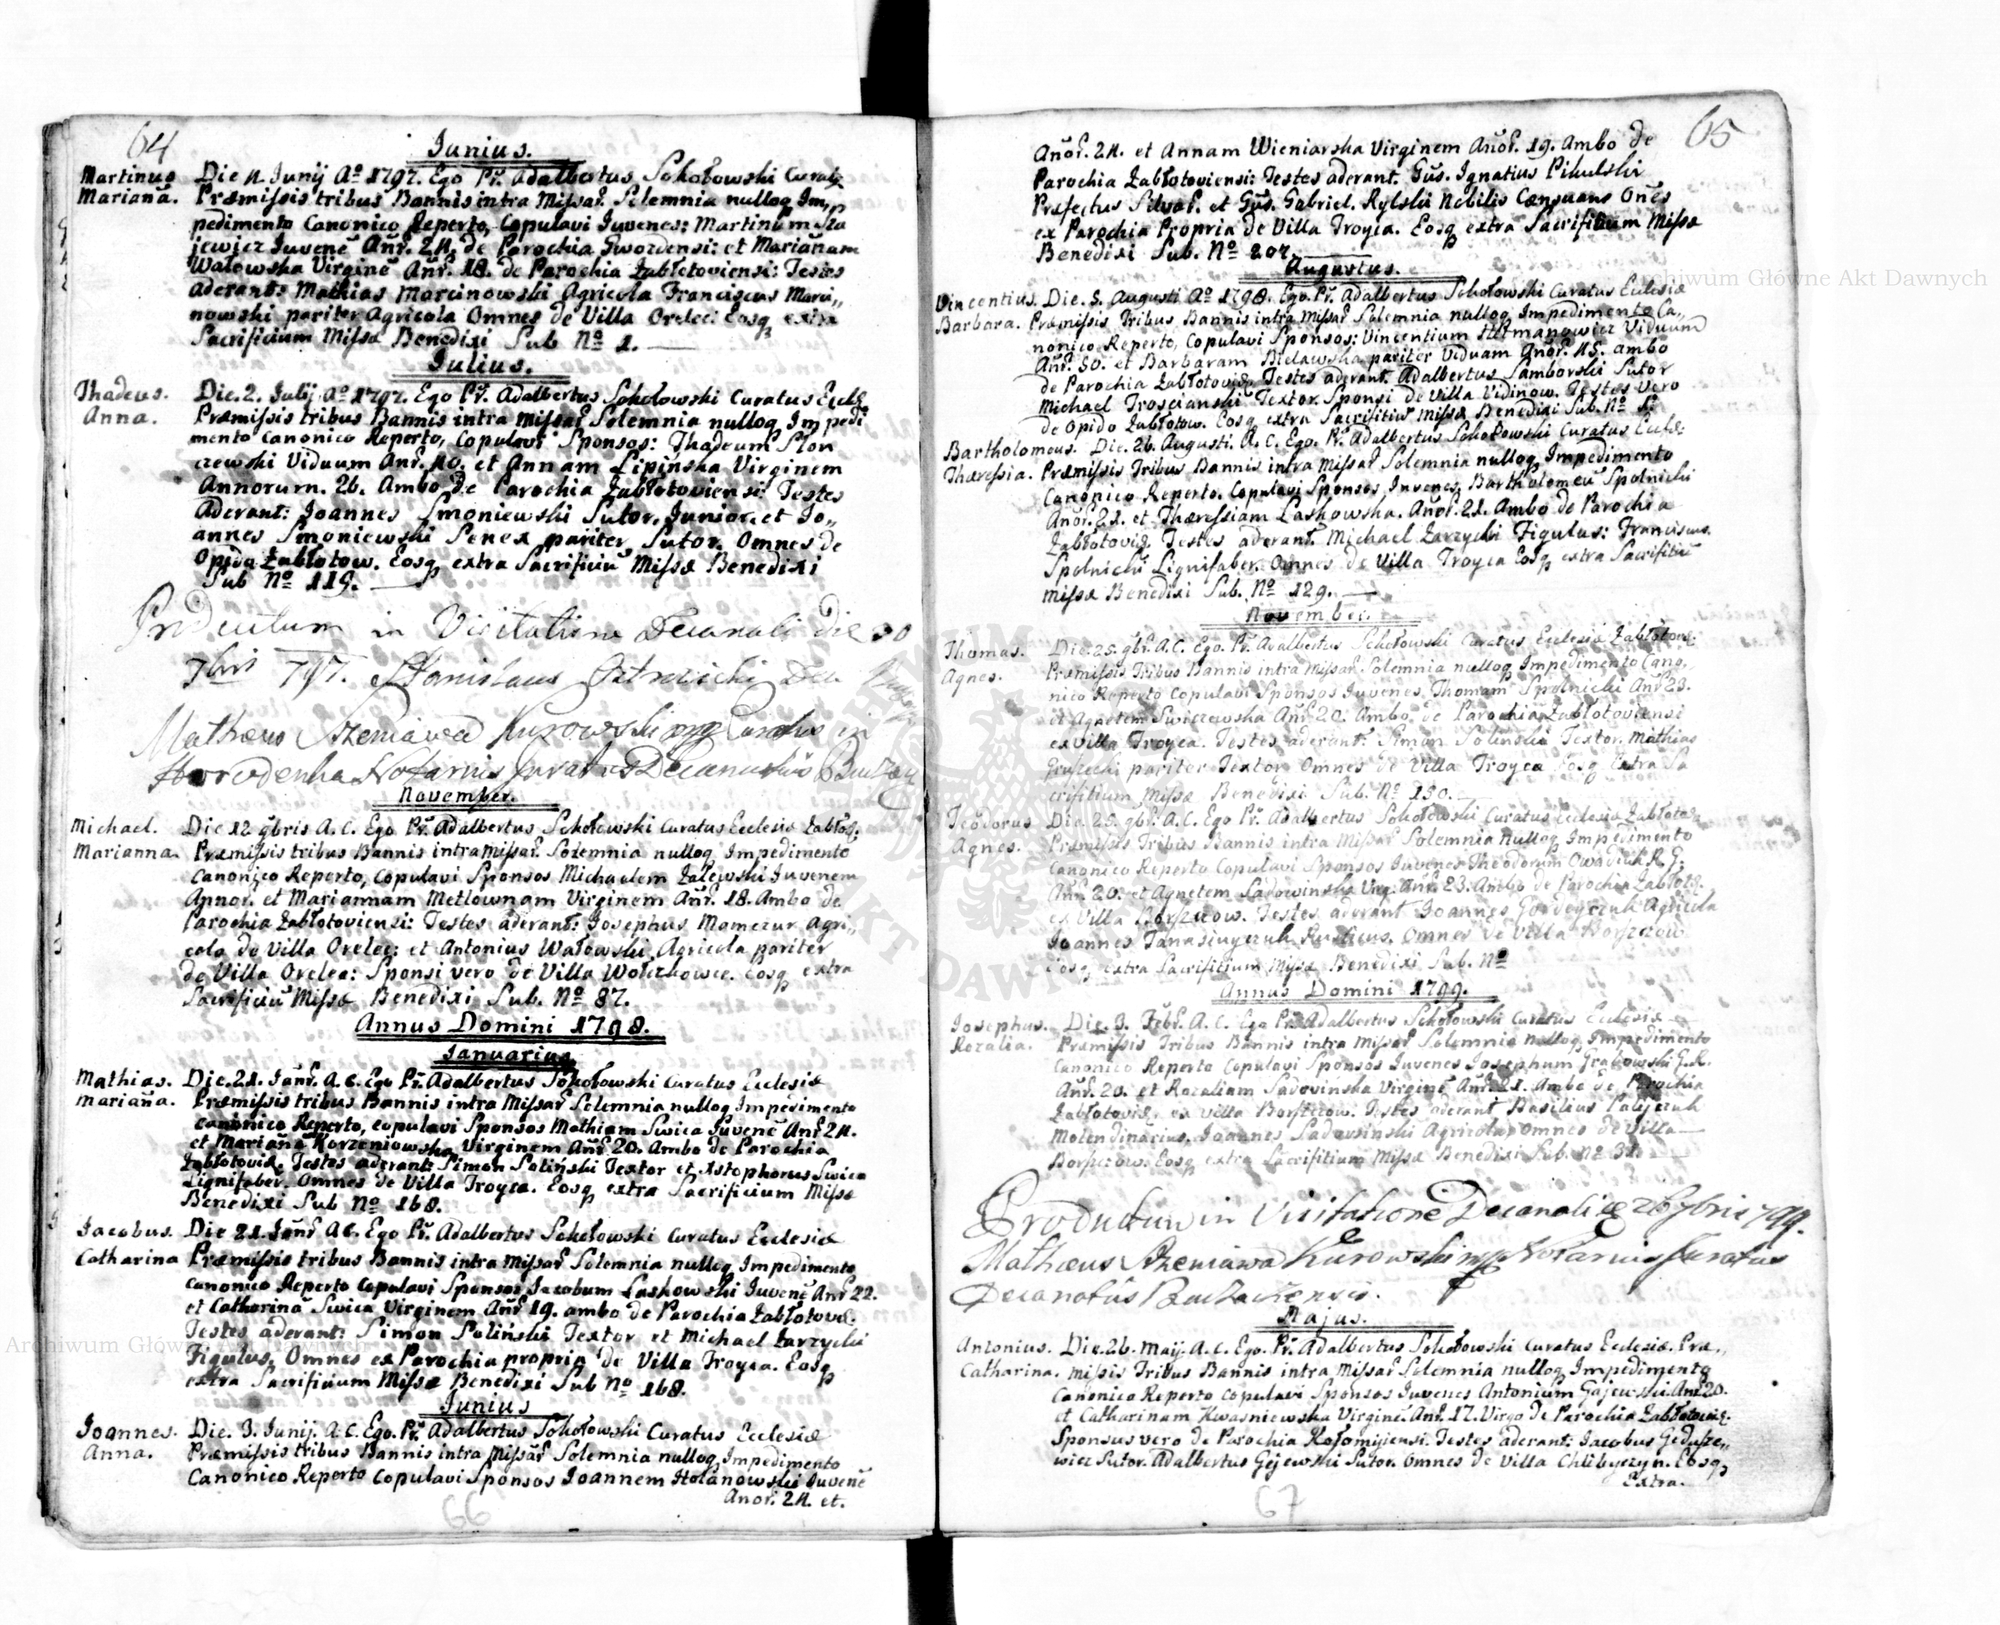 64
Junius.
Martinus Die 11. Junij Aº 1797. Ego Pr. Adalbertus Sokołowski Curatg
Mariana. Præmissis tribus Bannis intra Missar. Solemnia nulloq Im„
pedimento Canonico Reperto, Copulavi Juvenes: Martinum
jewicz Juvenē Anr. 24. de Parochia Gwozdensi: et Marianam
Wałowska Virginē Anr. 18. de Parochia Zabłotoviensi: Testes
aderant: Mathias Marcinowski Agricola Franciscus Marci„
nowski pariter Agricola Omnes de Villa Orelec: Eosq extra
Sacrificium Missæ Benedixi Sub Nº 1.
Julius.
Thadeus. Die. 2. Julij Aº 1797. Ego Pr. Adalbertus Sokołowski Curatus Eccle
Anna. Præmissis tribus Bannis intra Missar. Solemnia nulloq Impedi
mento Canonico Reperto, Copulavi Sponsos: Thadeum Słon
czewski Viduum Anr. 40. et Annam Lipinska Virginem
Annorum. 26. Ambo de Parochia Zabłotoviensi: Testes
Aderant: Joannes Smoniewski Sutor. Junior. et Jo„
annes Smoniewski Senex pariter Sutor. Omnes de
Opido Zabłotow. Eosq extra Sacrificiū Missæ Benedixi
Sub Nº 119.
Productum in Visitatione Decanali die 30
7bris 797. Stanislaus Ostrowicki Dec
Mathæus Szeniawa Kurowski mp Curatus in
Horodenka Notarius Juratus Decanatus Buczacz
November.
Michael. Die 12 9bris A. C. Ego Pr. Adalbertus Sokołowski Curatus Ecclesiæ Zabłot.
Marianna. Præmissis tribus Bannis intra Missar. Solemnia nulloq Impedimento
Canonico Reperto, Copulavi Sponsos Michaelem Zalewski Juvenem
Annor. et Mariannam Metlownam Virginem Anr. 18. Ambo de
Parochia Zabłotoviensi: Testes aderant: Josephus Momczur Agri„
cola de Villa Orelec: et Antonius Wałowski Agricola pariter
de Villa Orelea: Sponsi vero de Villa Wołczkowce. Eosq extra
Sacrificiū Missæ Benedixi Sub. Nº 87.
Annus Domini 1798.
Januarius
Mathias. Die. 21. Janr. A. C. Ego Pr. Adalbertus Sokołowski Curatus Ecclesiæ
Mariana. Præmissis tribus Bannis intra Missar. Solemnia nulloq Impedimento
Canonico Reperto, Copulavi Sponsos Mathiam Swica Juvenē Anr. 24.
et Marianā Korzeniowska Virginem Anr. 20. Ambo de Parochia
Zabłotoviæ. Testes aderant: Simon Soliński Textor et Xstophorus Swica
Lignifaber. Omnes de Villa Troyca. Eosq extra Sacrificium Missæ
Benedixi Sub Nº 168.
Jacobus. Die 21. Janr. A C. Ego Pr. Adalbertus Sokołowski Curatus Ecclesiæ
Catharina Præmissis tribus Bannis intra Missar. Solemnia nulloq Impedimento
Canonico Reperto Copulavi Sponsos Jacobum Laskowski Juvenē Anr 22.
et Catharinā Swica Virginem Anr. 19. ambo de Parochia Zabłotovi.
Testes aderant: Simon Soliński Textor et Michael Zarzycki
Figulus, Omnes ex Parochia propria de Villa Troyca. Eosq
extra Sacrificium Missæ Benedixi Sub Nº 168.
Junius
Joannes. Die. 3. Junij. A C. Ego. Pr. Adalbertus Sokołowski Curatus Ecclesiæ
Anna. Præmissis tribus Bannis intra Missar Solemnia nulloq Impedimento
Canonico Reperto Copulavi Sponsos Joannem Holanowski Juvenē
Anor. 24. et.
66
65
Anor. 24. et Annam Wieniarska Virginem Anor. 19. Ambo de
Parochia Zabłotoviensi: Testes aderant. Gūs. Ignatius Pikulski
Præfectus Silvar. et Gūs. Gabriel. Rylski Nobilis Censuans Onēs
ex Parochia Propria de Villa Troyca. Eosq extra Sacrifitium Missæ
Benedixi Sub. Nº 207.
Augustus.
Vincentius. Die. 5. Augusti Aº 1798. Ego. Pr. Adalbertus Sokołowski Curatus Ecclesiæ
Barbara. Præmissis Tribus Bannis intra Missar Solemnia nulloq Impedimento Ca„
nonico Reperto, Copulavi Sponsos: Vincentium Hermanowicz Viduum
Anr. 50. et Barbaram Bielawska pariter Viduam Anor. 45. ambo
de Parochia Zabłotoviæ Testes aderant. Adalbertus Samborski Sutor
Michael Troscianski Textor. Sponsi de Villa Vidinow. Testes Vero
de Opido Zabłotow. Eosq extra Sacrifitiū Missæ Benedixi Sub. Nº 1.
Bartholomeus. Die. 26. Augusti. A. C. Ego. Pr. Adalbertus Sokołowski Curatus Eccle:
Theressia. Præmissis Tribus Bannis intra Missar Solemnia nulloq Impedimento
Canonico Reperto. Copulavi Sponsos Juvenes Bartholomeū Spolnicki
Anor. 21. et Theressiam Laskowska. Anor. 21. Ambo de Parochia
Zabłotoviæ. Testes aderant. Michael Zarzycki Figulus: Franciscus.
Spolnicki Lignifaber. Omnes de Villa Troyca Eosq extra Sacrifitiū
Missæ Benedixi Sub. Nº 129.
November.
Thomas. Die. 25. 9br. A. C. Ego. Pr. Adalbertus Sokołowski Curatus Ecclesiæ Zabłotovi:
Agnes. Præmissis Tribus Bannis intra Missar. Solemnia nulloq Impedimento Cano„
nico Reperto Copulavi Sponsos Juvenes. Thomam Spolnicki Anr 23.
et Agnetem Swiczewska Anr. 20. Ambo de Parochia Zabłotoviensi
ex Villa Troyca. Testes aderant: Simon Solinski Textor. Mathias
pariter Textor Omnes de Villa Troyca Eosq Extra Sa
crifitium Missæ Benedixi Sub. Nº 130.
Teodorus Die. 25. 9br. A. C. Ego Pr. Adalbertus Sokołowski Curatus Ecclesiæ Zabłotoviæ
Agnes. Præmissis Tribus Bannis intra Missar Solemnia nulloq Impedimento
Canonico Reperto Copulavi Sponsos Juvenes Theodorum Owadiuk R. G.
Anr. 20. et Agnetem Sadowinska Virg: Anr. 23. Ambo de Parochia Zabłoto.
ex Villa Borszczow. Testes aderant Joannes Gordeyczuk Agricola
Joannes Tanasiuyczuk Rusticus. Omnes de Villa Borszczow
Eosq extra Sacrifitium Missæ Benedixi Sub. Nº
Annus Domini 1799.
Josephus. Die. 3. Febr. A. C. Ego Pr. Adalbertus Sokołowski Curatus Ecclesiæ
Rozalia. Præmissis Tribus Bannis intra Missar Solemnia nulloq Impedimento
Canonico Reperto Copulavi Sponsos Juvenes Josephum Grabowski G. R.
Anr. 20. et Rozaliam Sadovinska Virginē Anr. 21. Ambo de Parochia
Zabłotoviæ. ex Villa Borszczow. Testes aderant Basilius Palijczuk
Molendinarius. Joannes Sadowsinski Agricola, omnes de Villa
Borszczow. Eosq extra Sacrifitium Missæ Benedixi Sub. Nº 31.
Productum in Visitatione Decanali die 26 7bris 799.
Mathæus Szeniawa Kurowski mp Notarius Juratus
Decanatūs Buczacensis.
Majus.
Antonius. Die. 26. Maij. A. C. Ego. Pr. Adalbertus Sokołowski Curatus Ecclesiæ. Præ„
Catharina. missis Tribus Bannis intra Missar Solemnia nulloq Impedimento
Canonico Reperto Copulavi Sponsos Juvenes Antonium Gajewski. Anr. 20.
et Catharinam Kwasniewska Virginē. Anr. 17. Virgo de Parochia Zabłotoviæ.
Sponsus vero de Parochia Kołomyiensi. Testes aderant: Jacobus Gedusze„
wicz Sutor. Adalbertus Gejewski Sutor. Omnes de Villa Chlibyczyn. Eosq
Extra.
67
Archiwum Główne Akt Dawnych
Archiwum Główne Akt Dawnych
ARCHIWUM
AKT DAWNYCH